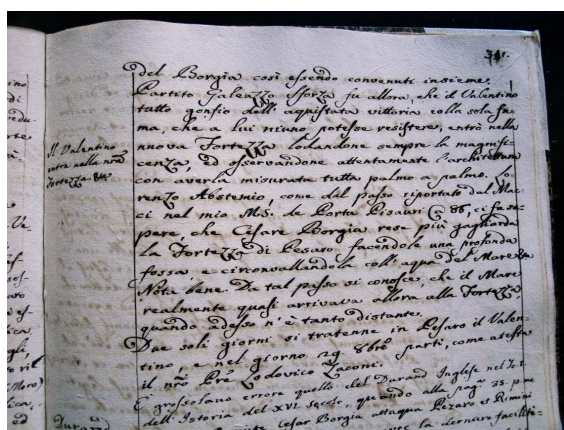 341.
del Borgia così essendo convenuti insieme.
Partito Galeazzo Sforza fu allora, che il Valentino
tutto gonfio dell'aquistata vittoria colla sola fa-
ma, che a lui niuno potesse resistere, entrò nella
nuova Fortezza lodandone sempre la magnifi-
cenza, ed osservandone attentamente l'architettura
con averla misurata tutta palmo a palmo. Lo-
renzo Abstemio, come dal passo riportato dal Ma-
ci nel mio M.S. de Porta Pisauri 86, ci fa sa-
pere, che Cesare Borgia rese più gagliarda
la Fortezza di Pesaro facendole una profonda
fossa, e circonvallandola coll'aqua del Mare
Nota bene. Da tal passo si conosce, che il Mare
realmente quasi arrivava allora alla Fortezza
quando adesso n'è tanto distante.
Due soli giorni si trattenne in Pesaro il Valen-
tino, e nel giorno 29 8bre partì, come attesta
il nro Pre Lodovico Zaconi.
È grossolano errore quello del Durand Inglese nel To:
dell'Istoria del XVI secolo, quando alla pag. 25.
Cesar Borgia attaqua Pezaro et Rimini
avec la derniere facilité
Il Valentino
entra nella nra
Fortezza
Durand